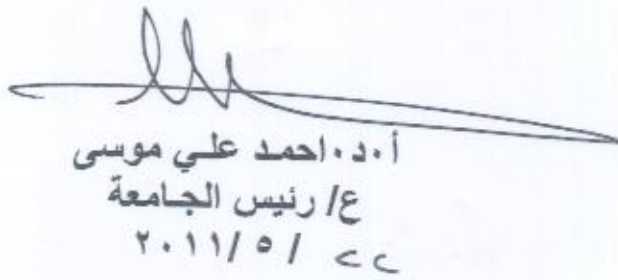 أ.د.احمد علي موسى
ع/ رئيس الجامعة
٢٢ / ٥ /٢٠١١